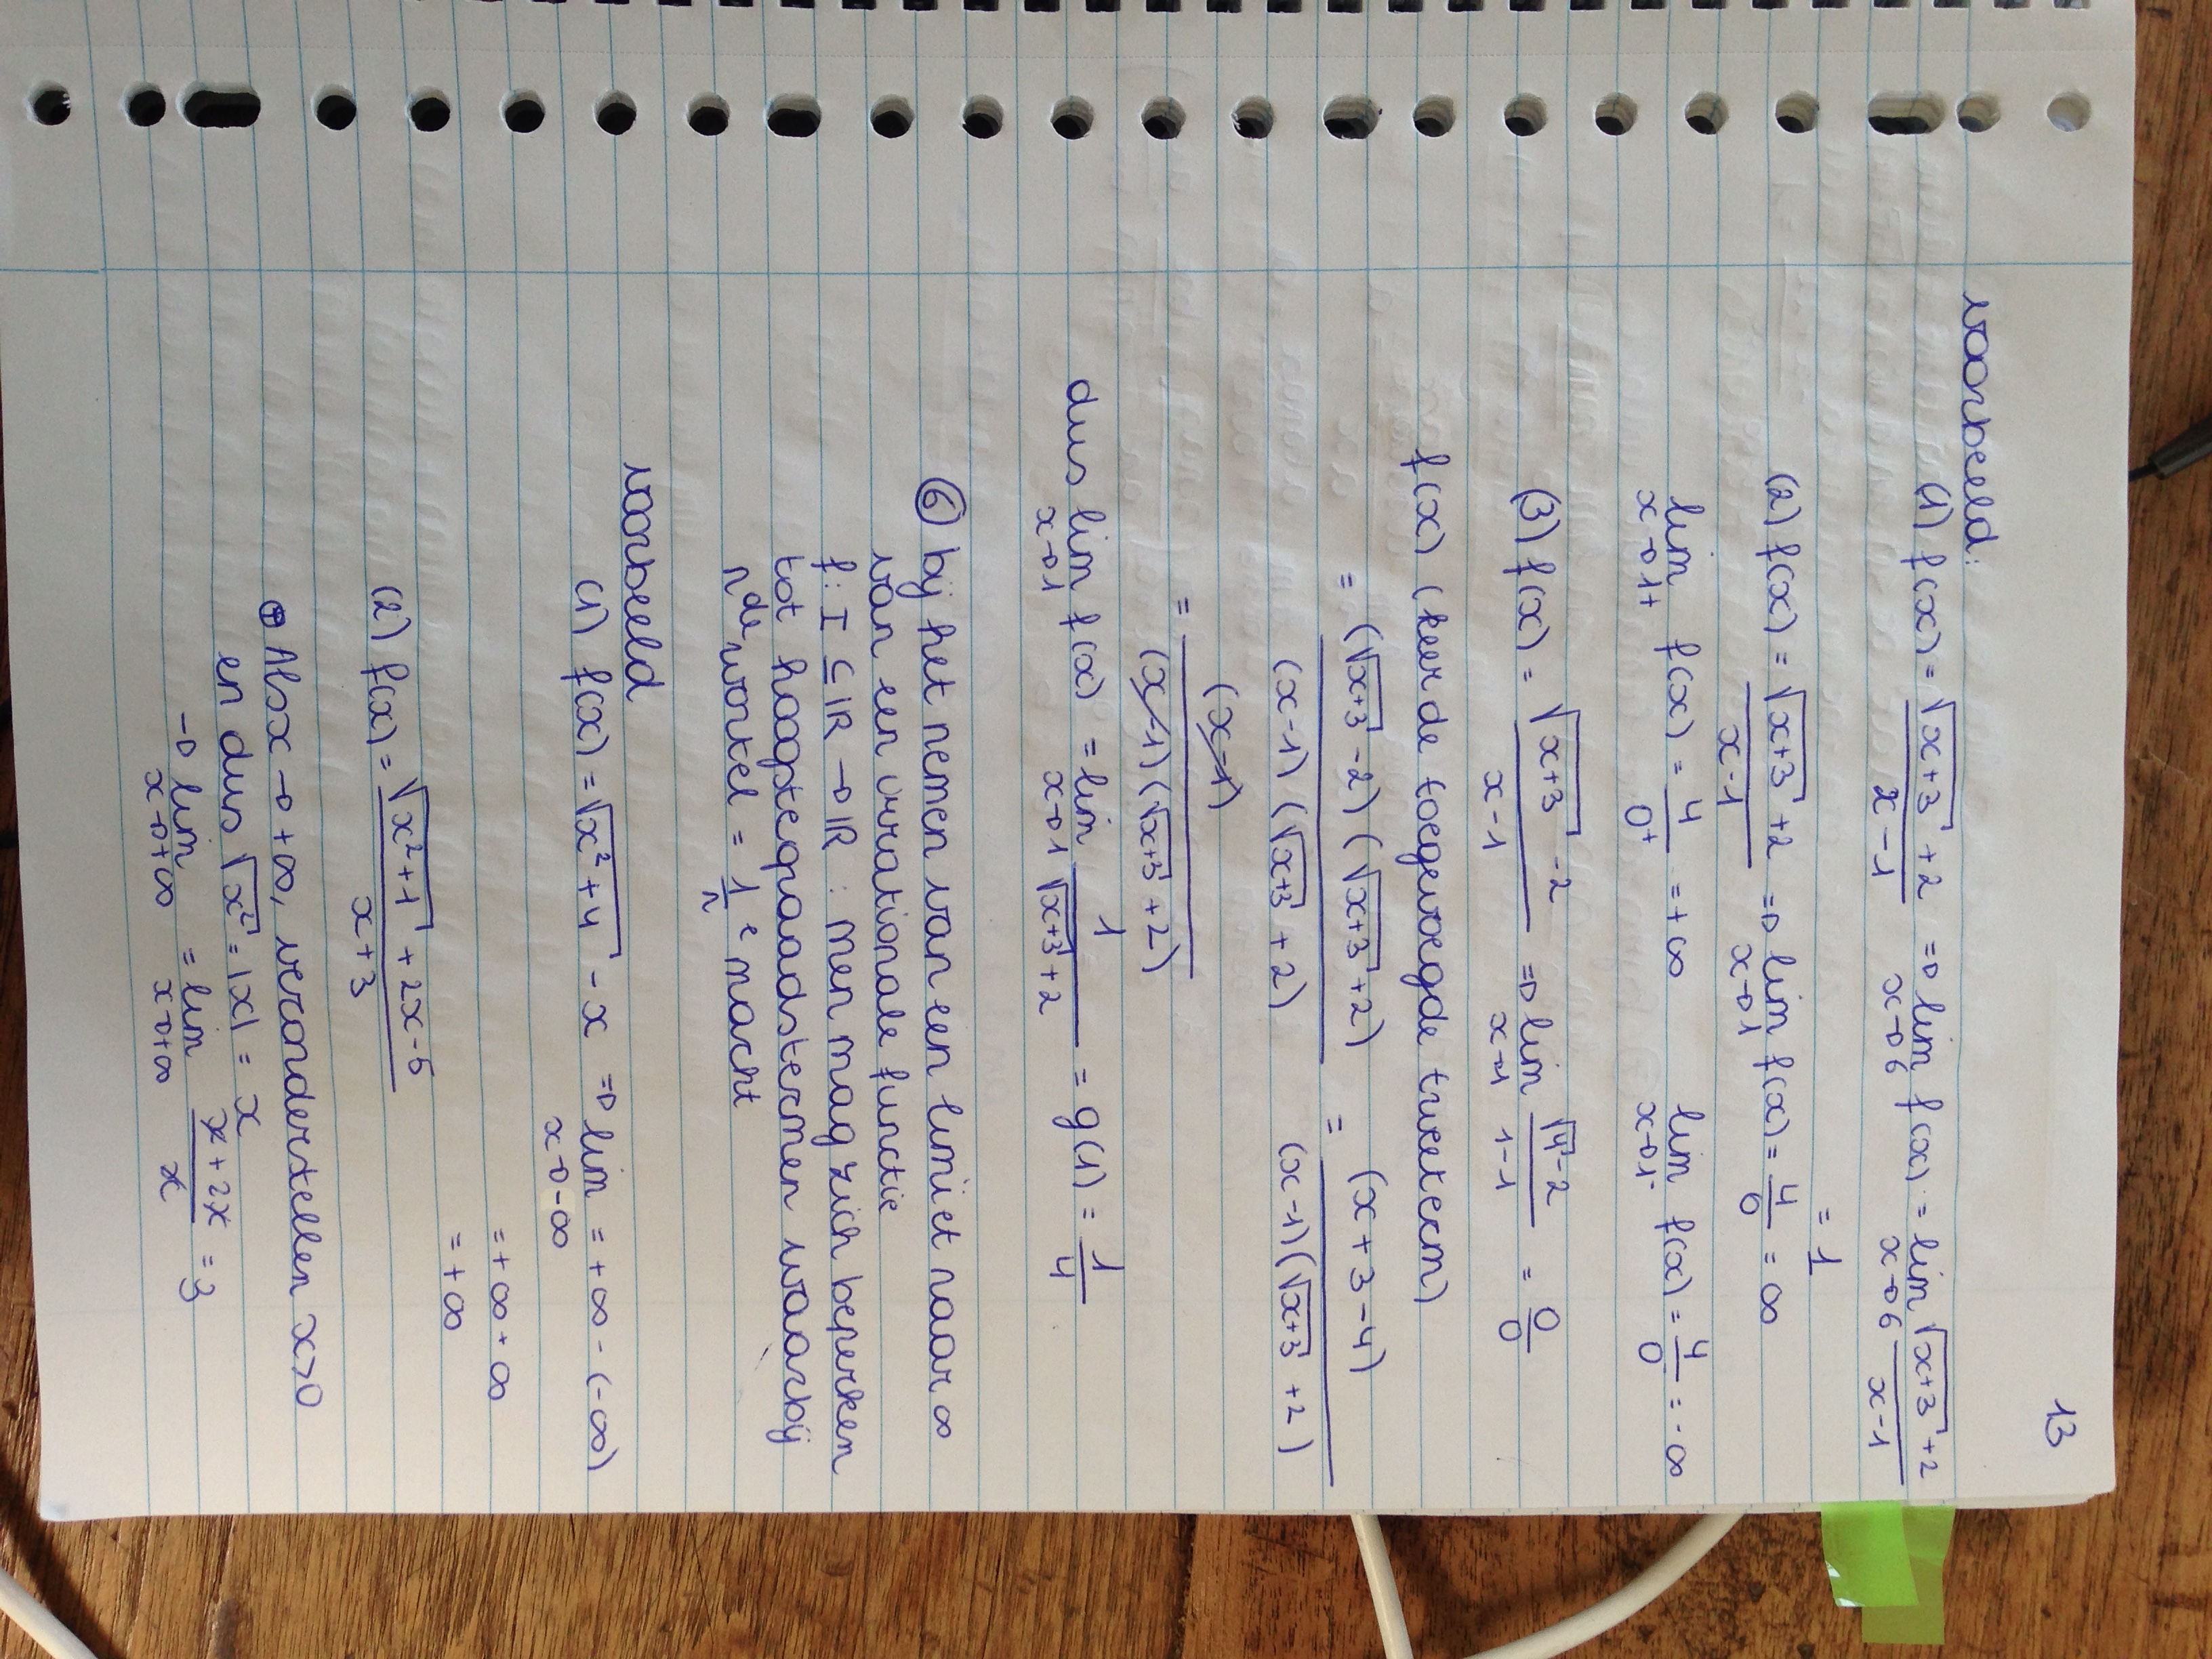 13
voorbeeld:
(1) f(x) = (√(x+3) + 2)/(x-1) ⇒ lim x→6 f(x) = lim x→6 (√(x+3) + 2)/(x-1)
= 1
(2) f(x) = (√(x+3) + 2)/(x-1) ⇒ lim x→1 f(x) = 4/0 = ∞
lim x→1+ f(x) = 4/0⁺ = +∞ lim x→1- f(x) = 4/0⁻ = -∞
(3) f(x) = (√(x+3) - 2)/(x-1) ⇒ lim x→1 (√4 - 2)/(1-1) = 0/0
f(x) (keer de toegevoegde tweeterm)
= ((√(x+3) - 2)(√(x+3) + 2))/((x-1)(√(x+3) + 2)) = (x+3-4)/((x-1)(√(x+3) + 2))
= (x-1)/((x-1)(√(x+3) + 2))
dus lim x→1 f(x) = lim x→1 1/(√(x+3) + 2) = g(1) = 1/4
⑥ bij het nemen van een limiet naar ∞
van een irrationale functie
f: I ⊆ ℝ → ℝ : men mag zich beperken
tot hoogstegraadstermen waarbij
nde wortel = 1/n e macht
voorbeeld
(1) f(x) = √(x²+4) - x ⇒ lim x→-∞ = +∞ - (-∞)
= +∞ + ∞
= +∞
(2) f(x) = (√(x²+1) + 2x-5)/(x+3)
⊕ Als x → +∞, veronderstellen x>0
en dus √x² = |x| = x
→ lim x→+∞ = lim x→+∞ (x + 2x)/x = 3